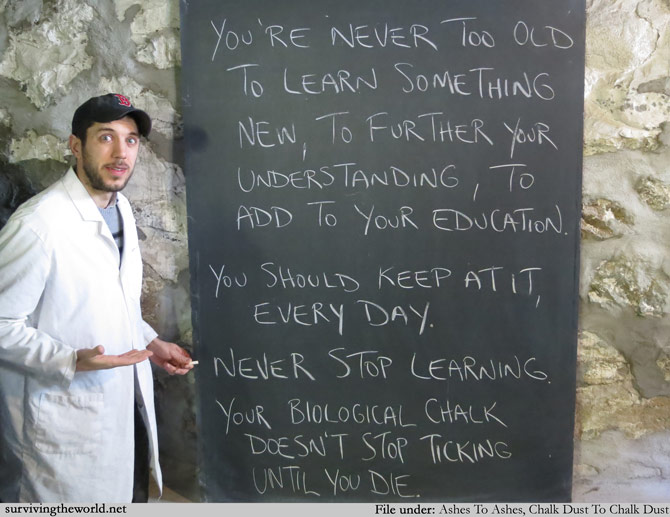 YOU'RE NEVER TOO OLD
TO LEARN SOMETHING
NEW, TO FURTHER YOUR
UNDERSTANDING, TO
ADD TO YOUR EDUCATION.
YOU SHOULD KEEP AT IT,
EVERY DAY.
NEVER STOP LEARNING.
YOUR BIOLOGICAL CHALK
DOESN'T STOP TICKING
UNTIL YOU DIE.
survivingtheworld.net
File under: Ashes To Ashes, Chalk Dust To Chalk Dust